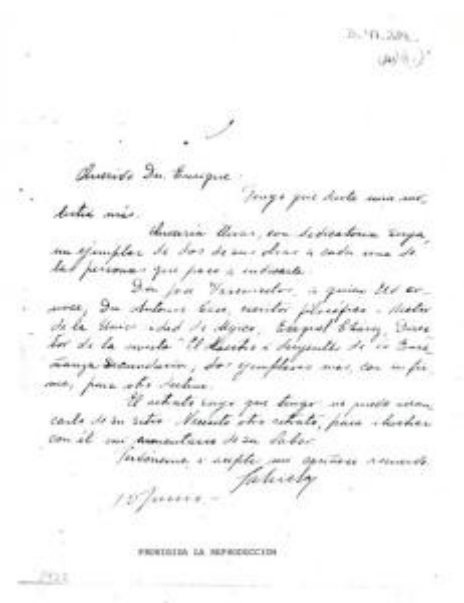 Querido Dn. Enrique:
Tengo que darle una mo-
lestia más.
Querría llevar, con dedicatoria suya,
un ejemplar de dos de sus obras a cada una de
las personas que paso a indicarle.
Don José Vasconcelos, a quien Ud co-
noce, Dn Antonio Caso, escritor filosófico y Rector
de la Universidad de Méjico, Ezequiel Chávez, Direc-
tor de la
de la Ense-
ñanza Secundaria, dos ejemplares más, con su fir-
ma, para otro destino.
El retrato suyo que tengo no puedo
carlo de su sitio. Necesito otro retrato, para ilustrar
con él mi comentario de su labor.
Perdóneme y acepte un cariñoso recuerdo.
Gabriela
15 Junio.-
PROHIBIDA LA REPRODUCCION
1922